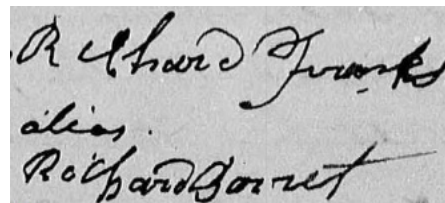 Richard Franks
alias.
Richard Borret